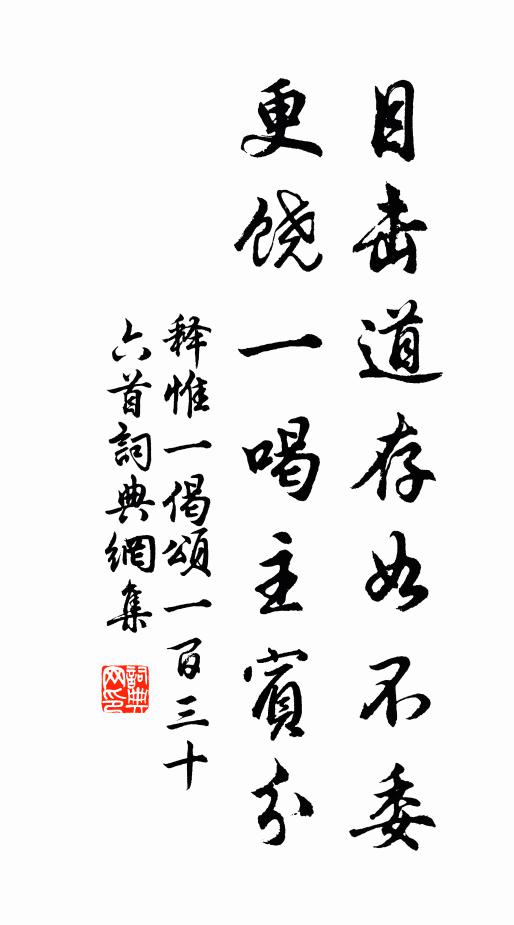 目击道存如不委
更饶一喝主賓分
释惟一偈頌一百三十
六首詞典網集
詞典网印